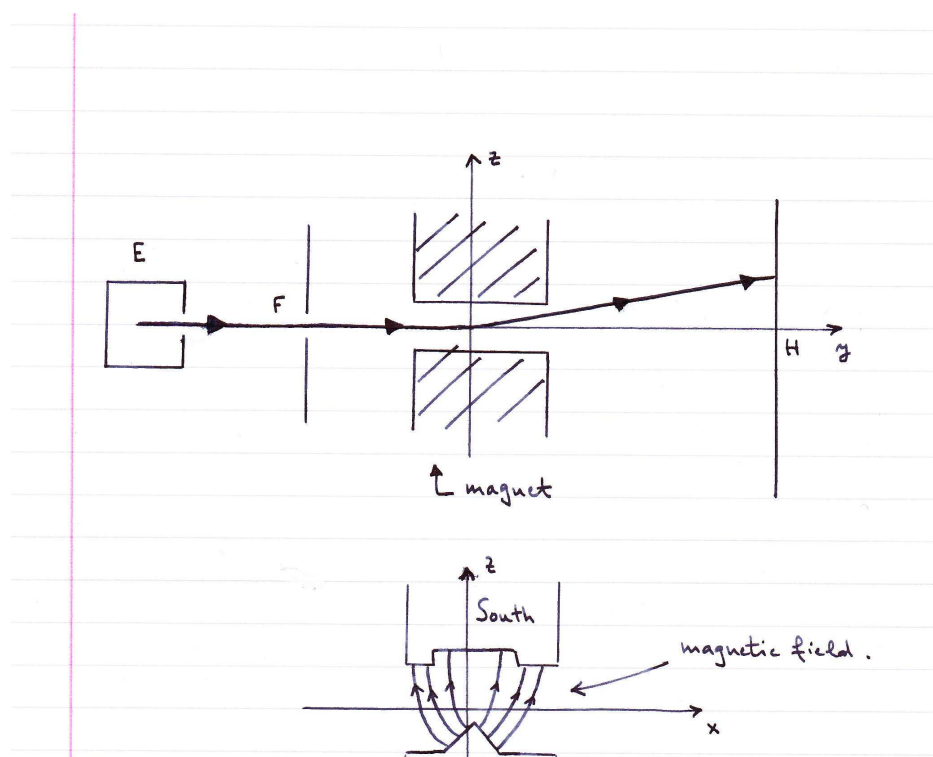 z
E
F
H y
magnet
z
South
magnetic field.
x